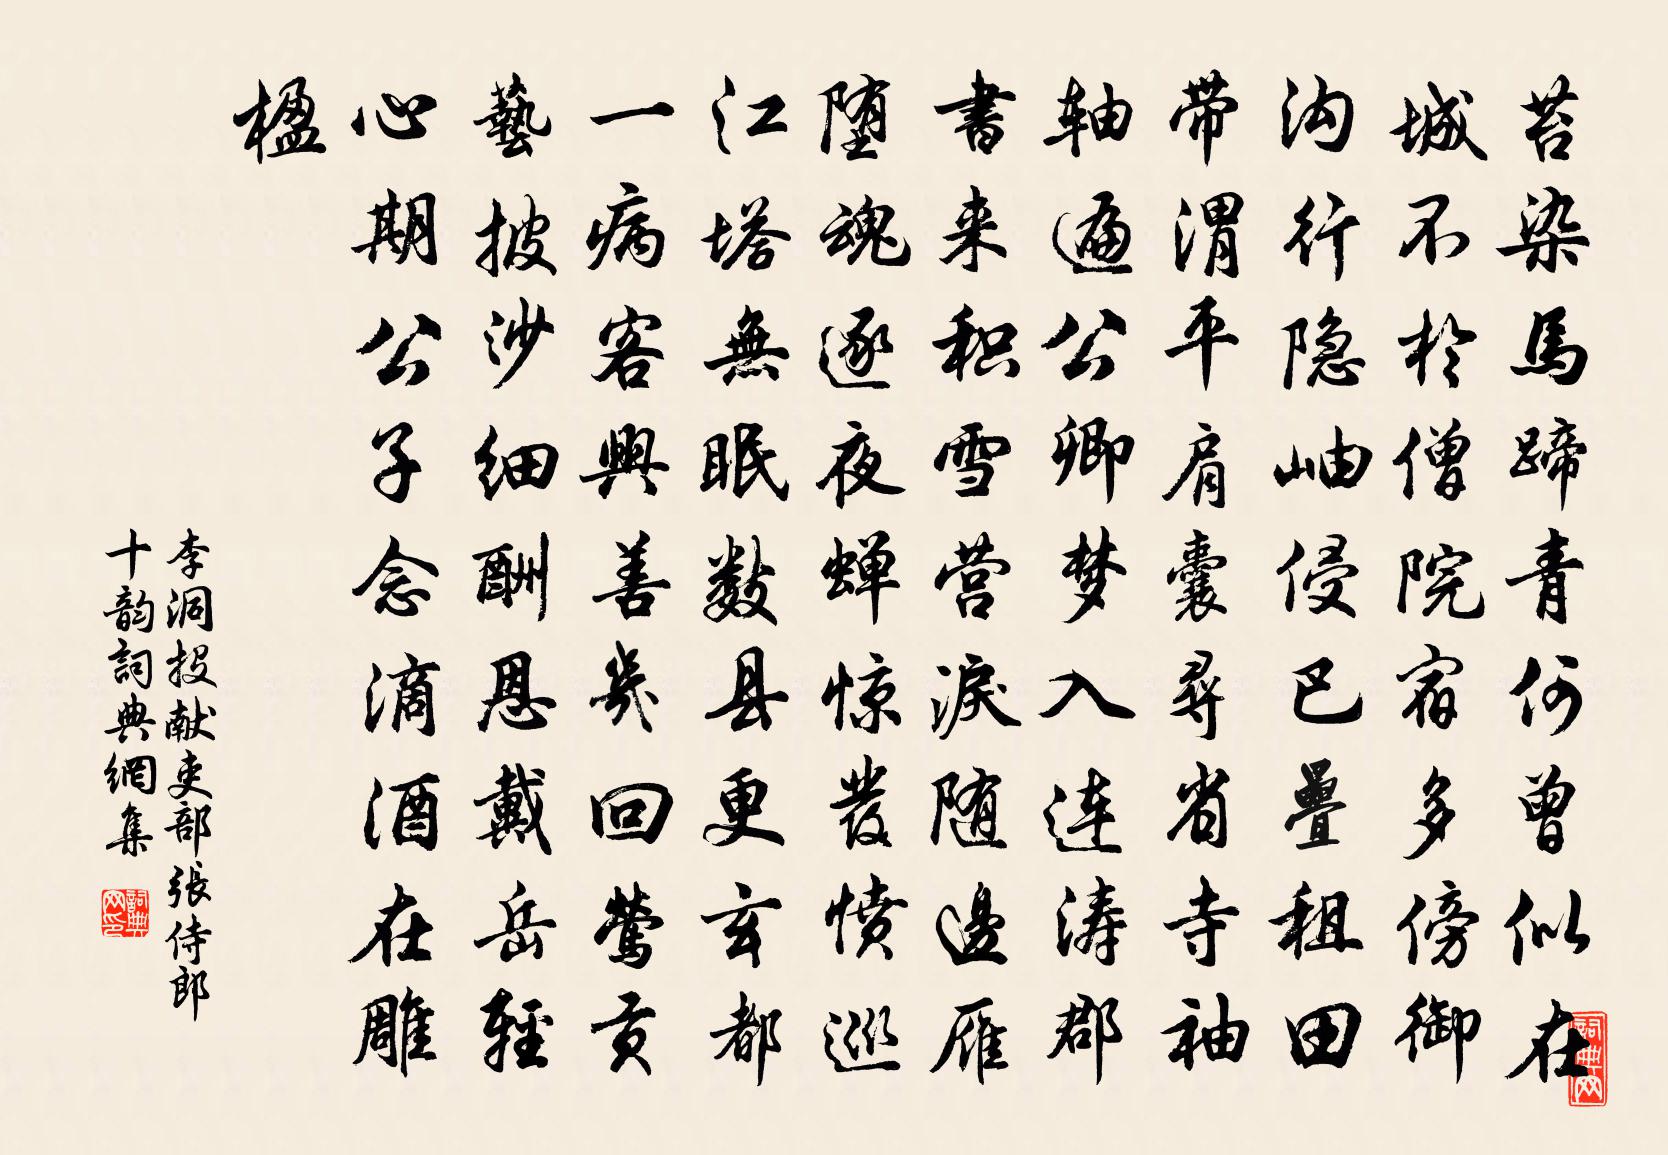 苔染馬蹄青何曾似在
城不於僧院宿多傍御
沟行隐岫侵巴疊租田
带渭平肩囊尋省寺袖
軸遍公卿梦入连涛郡
書来积雪营淚随邊雁
堕魂逐夜蝉惊發愤巡
江塔無眠数县更玄都
一病客興善幾回鶯贡
藝披沙细酬恩戴岳輕
心期公子念滴酒在雕
楹
李洞投献吏部張侍郎
十韵詞典網集
詞典网
詞典网印